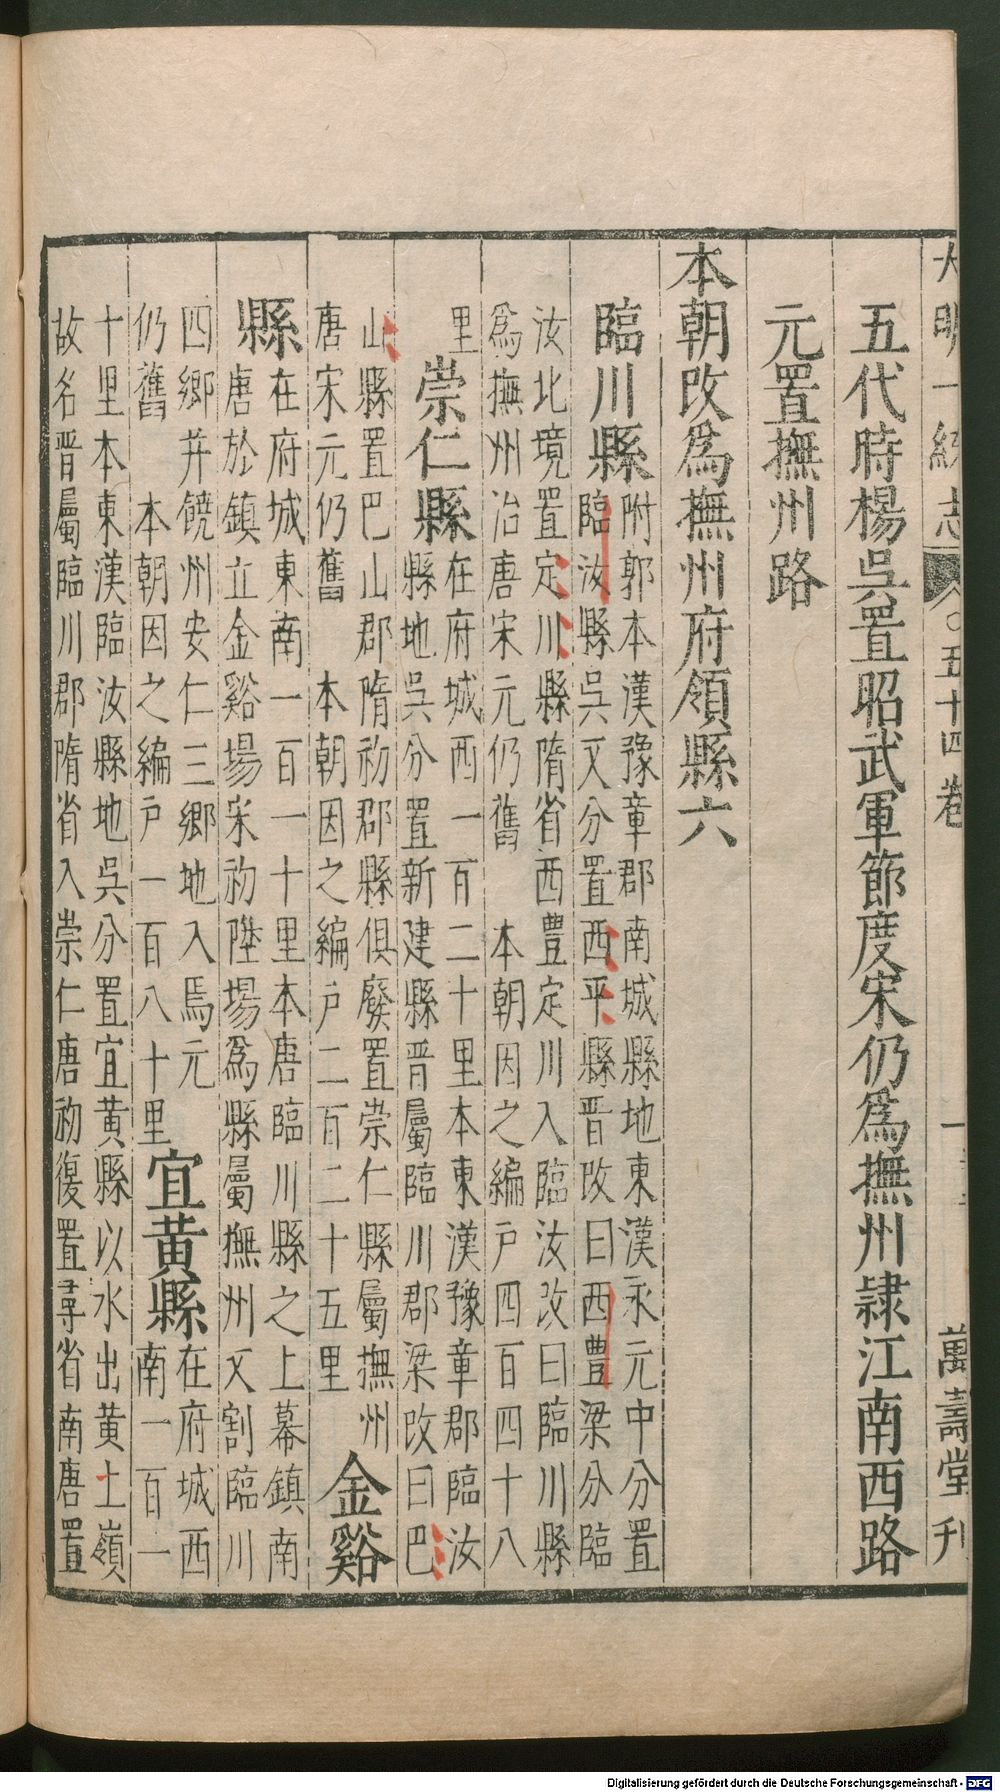 大明一統志 〇五十四卷 萬壽堂刊
五代時楊吳置昭武軍節度宋仍爲撫州隷江南西路
元置撫州路
本朝改爲撫州府領縣六
臨川縣
附郭本漢豫章郡南城縣地東漢永元中分置
臨汝縣吳又分置西平縣晉改曰西豐梁分臨
汝北境置定川縣隋省西豐定川入臨汝改曰臨川縣
爲撫州治唐宋元仍舊 本朝因之編戶四百四十八
里
崇仁縣
在府城西一百二十里本東漢豫章郡臨汝
縣地吳分置新建縣晉屬臨川郡梁改曰巴
山縣置巴山郡隋初郡縣俱廢置崇仁縣屬撫州
唐宋元仍舊 本朝因之編戶二百二十五里
金谿
縣
在府城東南一百一十里本唐臨川縣之上幕鎮南
唐於鎮立金谿場宋初陞場爲縣屬撫州又割臨川
四鄉并饒州安仁三鄉地入焉元
仍舊 本朝因之編戶一百八十里
宜黄縣
在府城西
南一百一
十里本東漢臨汝縣地吳分置宜黄縣以水出黄土嶺
故名晉屬臨川郡隋省入崇仁唐初復置尋省南唐置
Digitalisierung gefördert durch die Deutsche Forschungsgemeinschaft - DFG